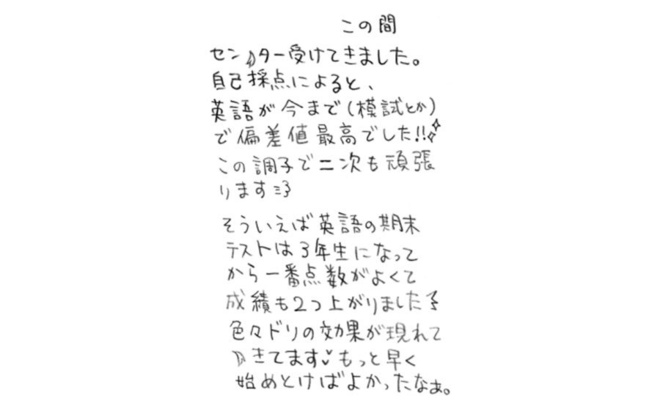 この間
センター受けてきました。
自己採点によると、
英語が今まで(模試とか)
で偏差値最高でした!!
この調子で二次も頑張
ります
そういえば英語の期末
テストは3年生になって
から一番点数がよくて
成績も2つ上がりました
色々ドリの効果が現れて
きてます♥もっと早く
始めとけばよかったなぁ。